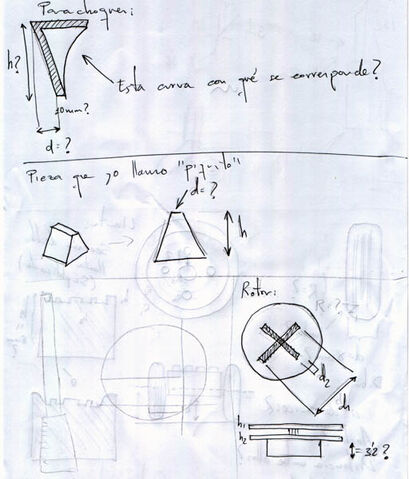 Parachoques:
h?
Esta curva con qué se corresponde?
10mm?
d=?
Pieza que yo llamo "piquito"
d=?
h
Rotor:
d2
d1
h1
h2
=3'2?